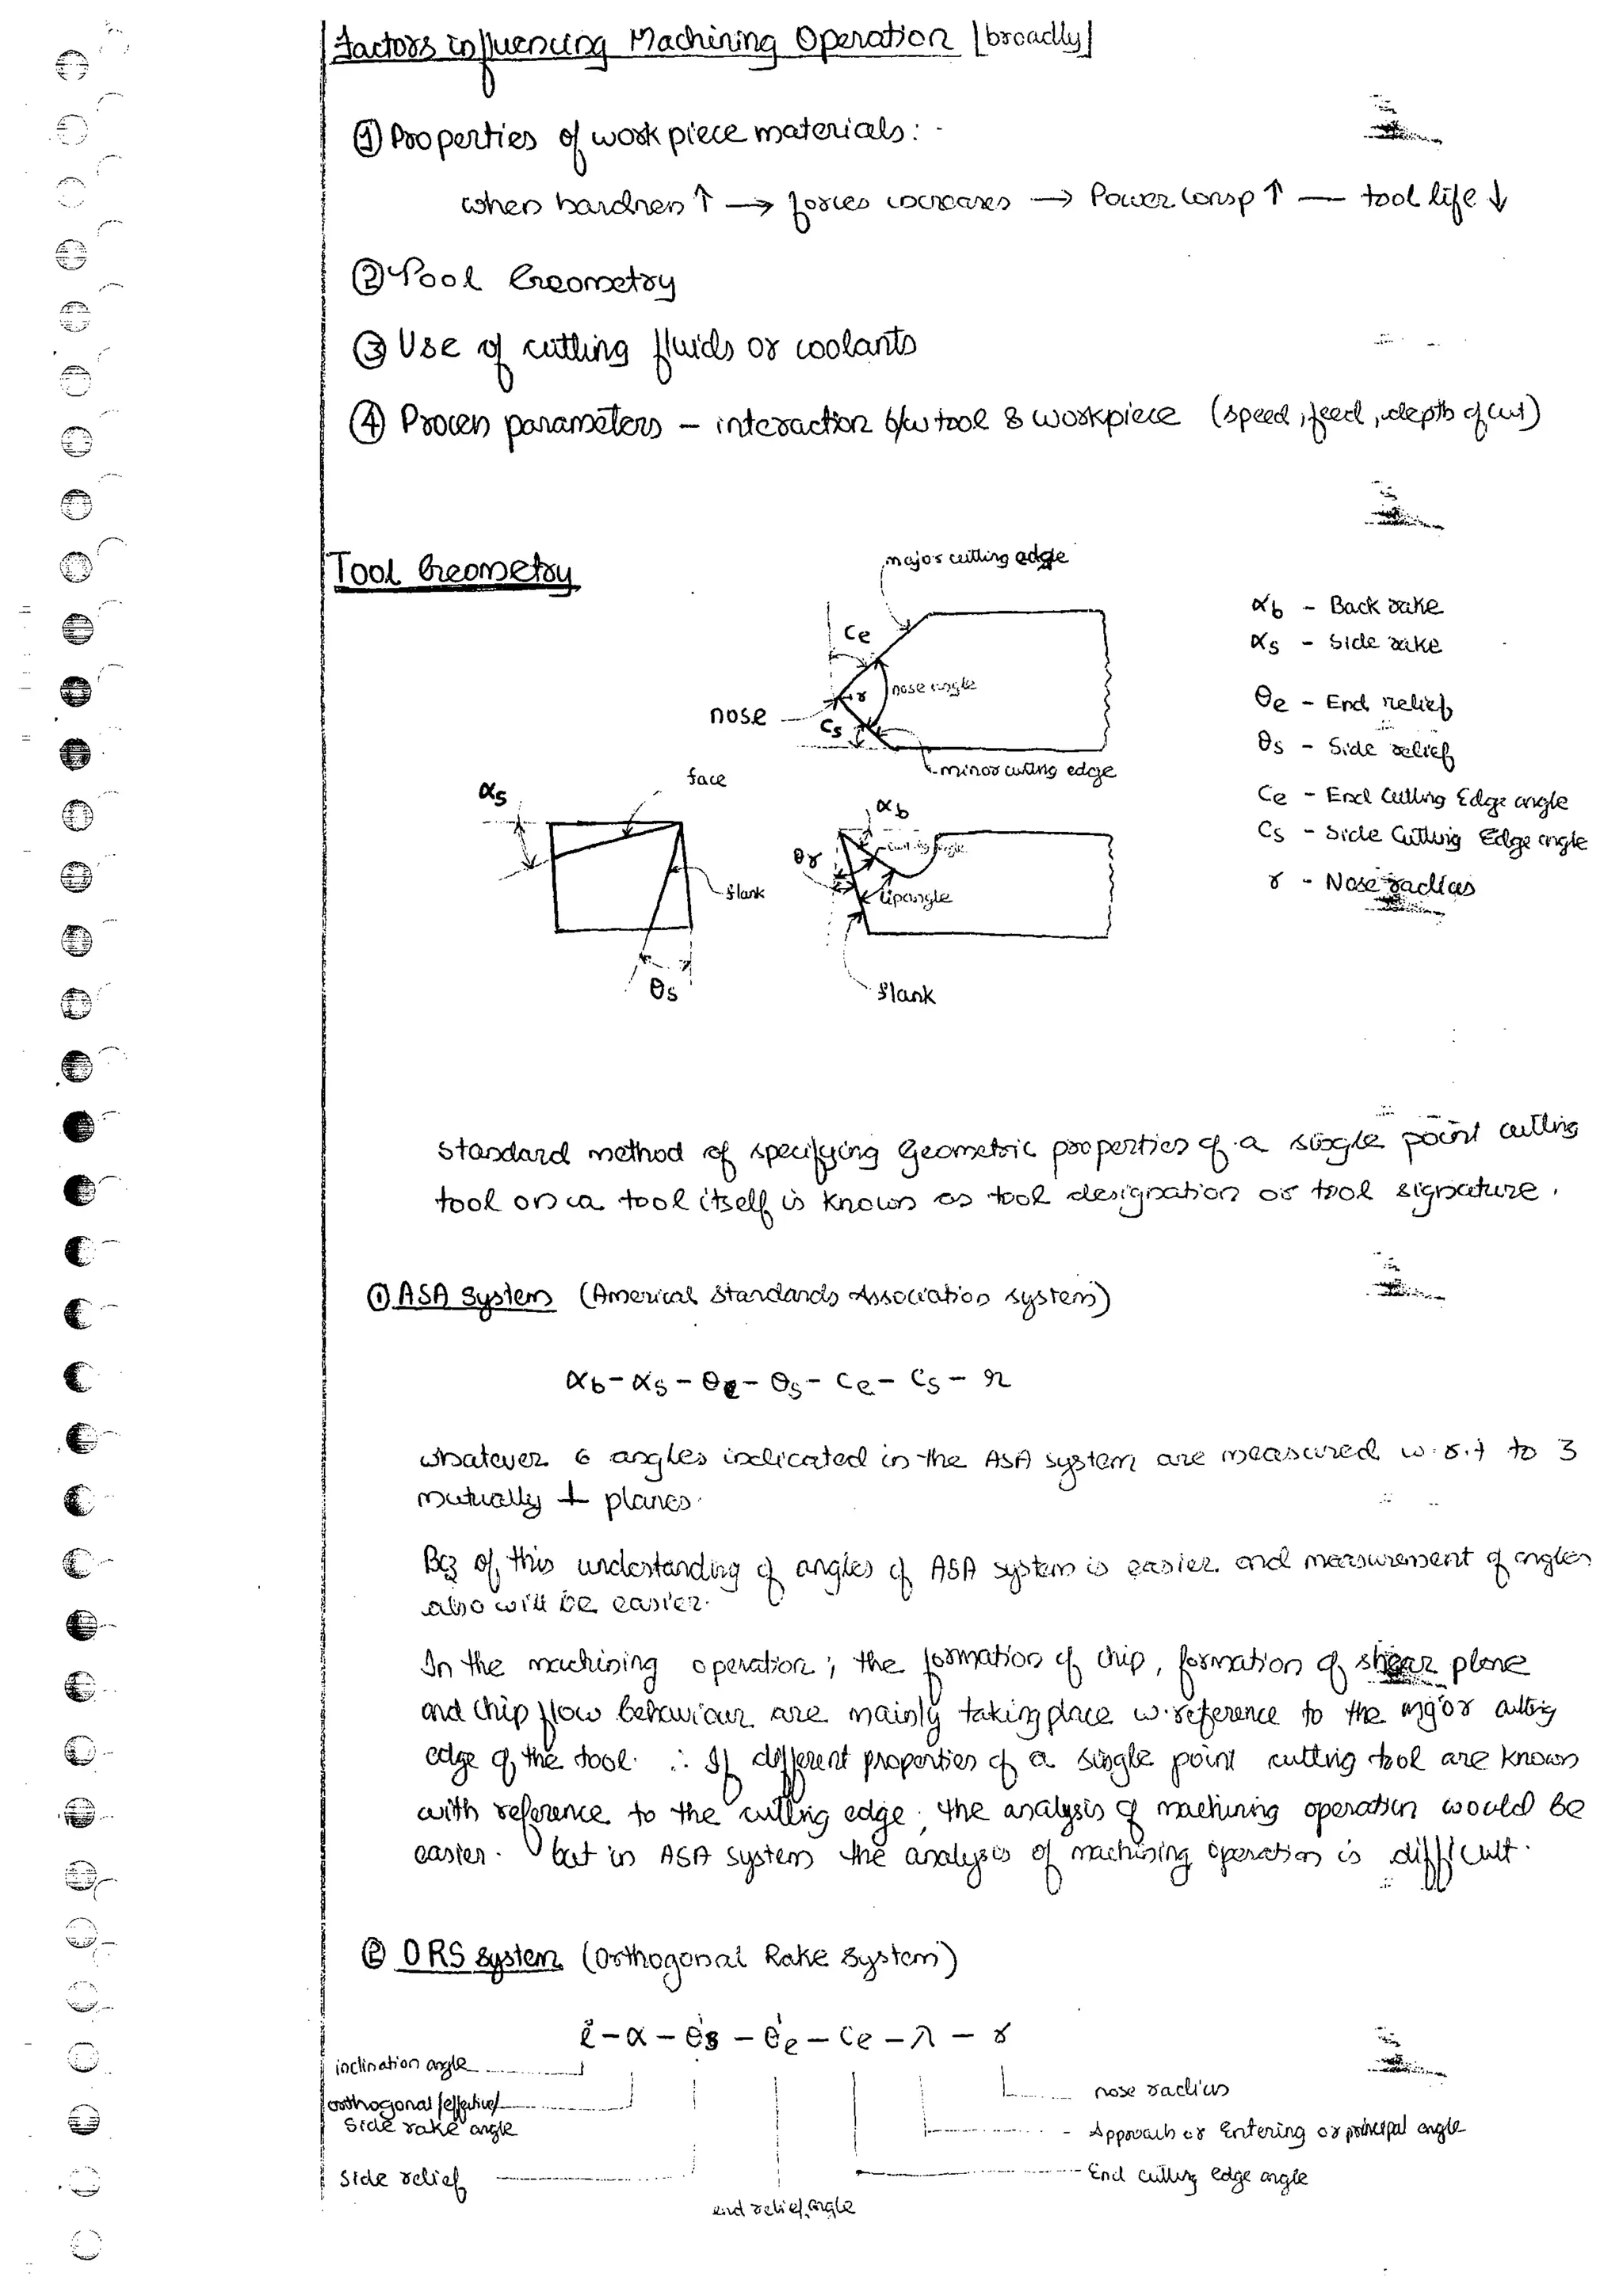 Factors influencing Machining Operation [broadly]
① Properties of work piece materials:-
when hardness ↑ → forces increases → Power Consp ↑ — tool life ↓
② Tool Geometry
③ Use of cutting fluids or coolants
④ Process parameters – interaction b/w tool & workpiece (speed, feed, depth of cut)
Tool Geometry
major cutting edge
Ce
nose angle
r
nose
Cs
minor cutting edge
αb - Back rake
αs - Side rake
θe - End relief
θs - Side relief
Ce - End Cutting Edge angle
Cs - Side Cutting Edge angle
r - Nose radius
αs
face
flank
θs
αb
θr
lip angle
flank
Standard method of specifying Geometric properties of a single point cutting
tool on a tool itself is known as tool designation or tool signature.
① ASA System (American Standards Association system)
αb - αs - θe - θs - Ce - Cs - r
whatever 6 angles indicated in the ASA system are measured w.r.t to 3
mutually ⊥ planes.
Bcz of this understanding of angles of ASA system is easier and measurement of angles
also will be easier.
In the machining operation, the formation of chip, formation of shear plane
and chip flow behaviour are mainly taking place w.reference to the major cutting
edge of the tool. ∴ If different properties of a single point cutting tool are known
with reference to the cutting edge, the analysis of machining operation would be
easier. but in ASA system the analysis of machining operation is difficult.
② ORS system (Orthogonal Rake System)
i - α - θs' - θe' - Ce - λ - r
inclination angle
orthogonal/effective/
Side rake angle
Side relief
end relief angle
nose radius
Approach or Entering or principal angle
End cutting edge angle